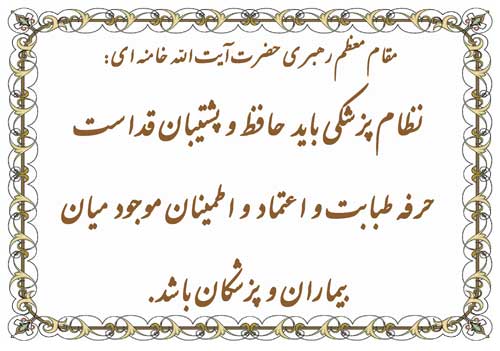 مقام معظم رهبری حضرت آیت الله خامنه ای:
نظام پزشکی باید حافظ و پشتیبان قداست
حرفه طبابت و اعتماد و اطمینان موجود میان
بیماران و پزشکان باشد.